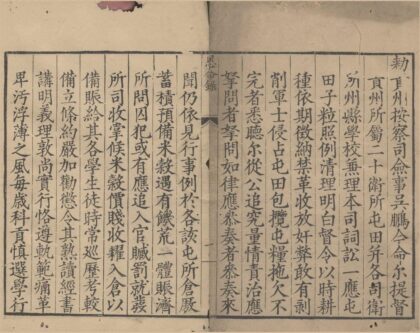 勑貴州按察司僉事吳鵬今命爾提督
貴州所屬二十衛所屯田幷各衛
所州縣學校兼理本司詞訟一應屯
田子粒照例清理明白督令以時耕
種依期徵納禁革收放奸弊敢有剝
削軍士侵占屯田包攬屯糧拖欠不
完者悉聽爾從公追究量情責治應
拏問者拏問如律應叅奏者叅奏來
恩命錄
聞仍依見行事例於各該屯所倉廒
蓄積預備米穀遇有饑荒一體賑濟
所問囚犯或有應追入官贓罰就發
所司收掌候米穀價賤收糴入倉以
備賑給其各學生徒時常巡歷考較
備立條約嚴加勸懲令其熟讀經書
講明義理敦尚實行恪遵軌範痛革
卑污浮薄之風每歲科貢慎選學行